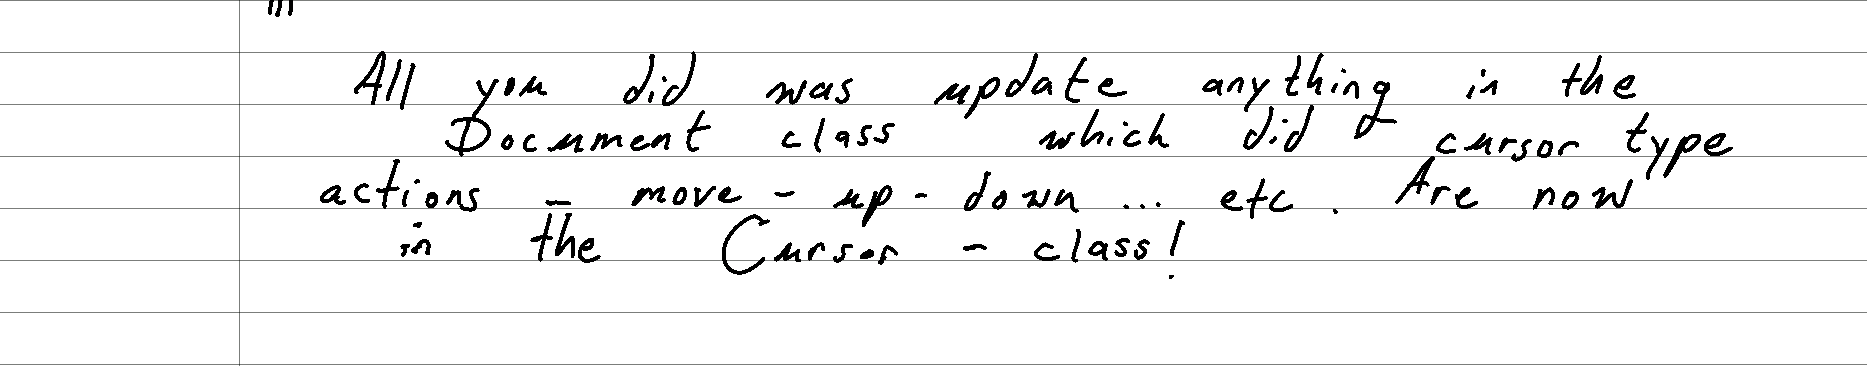 All you did was update anything in the
Document class which did cursor type
actions - move - up - down ... etc. Are now
in the Cursor - class!